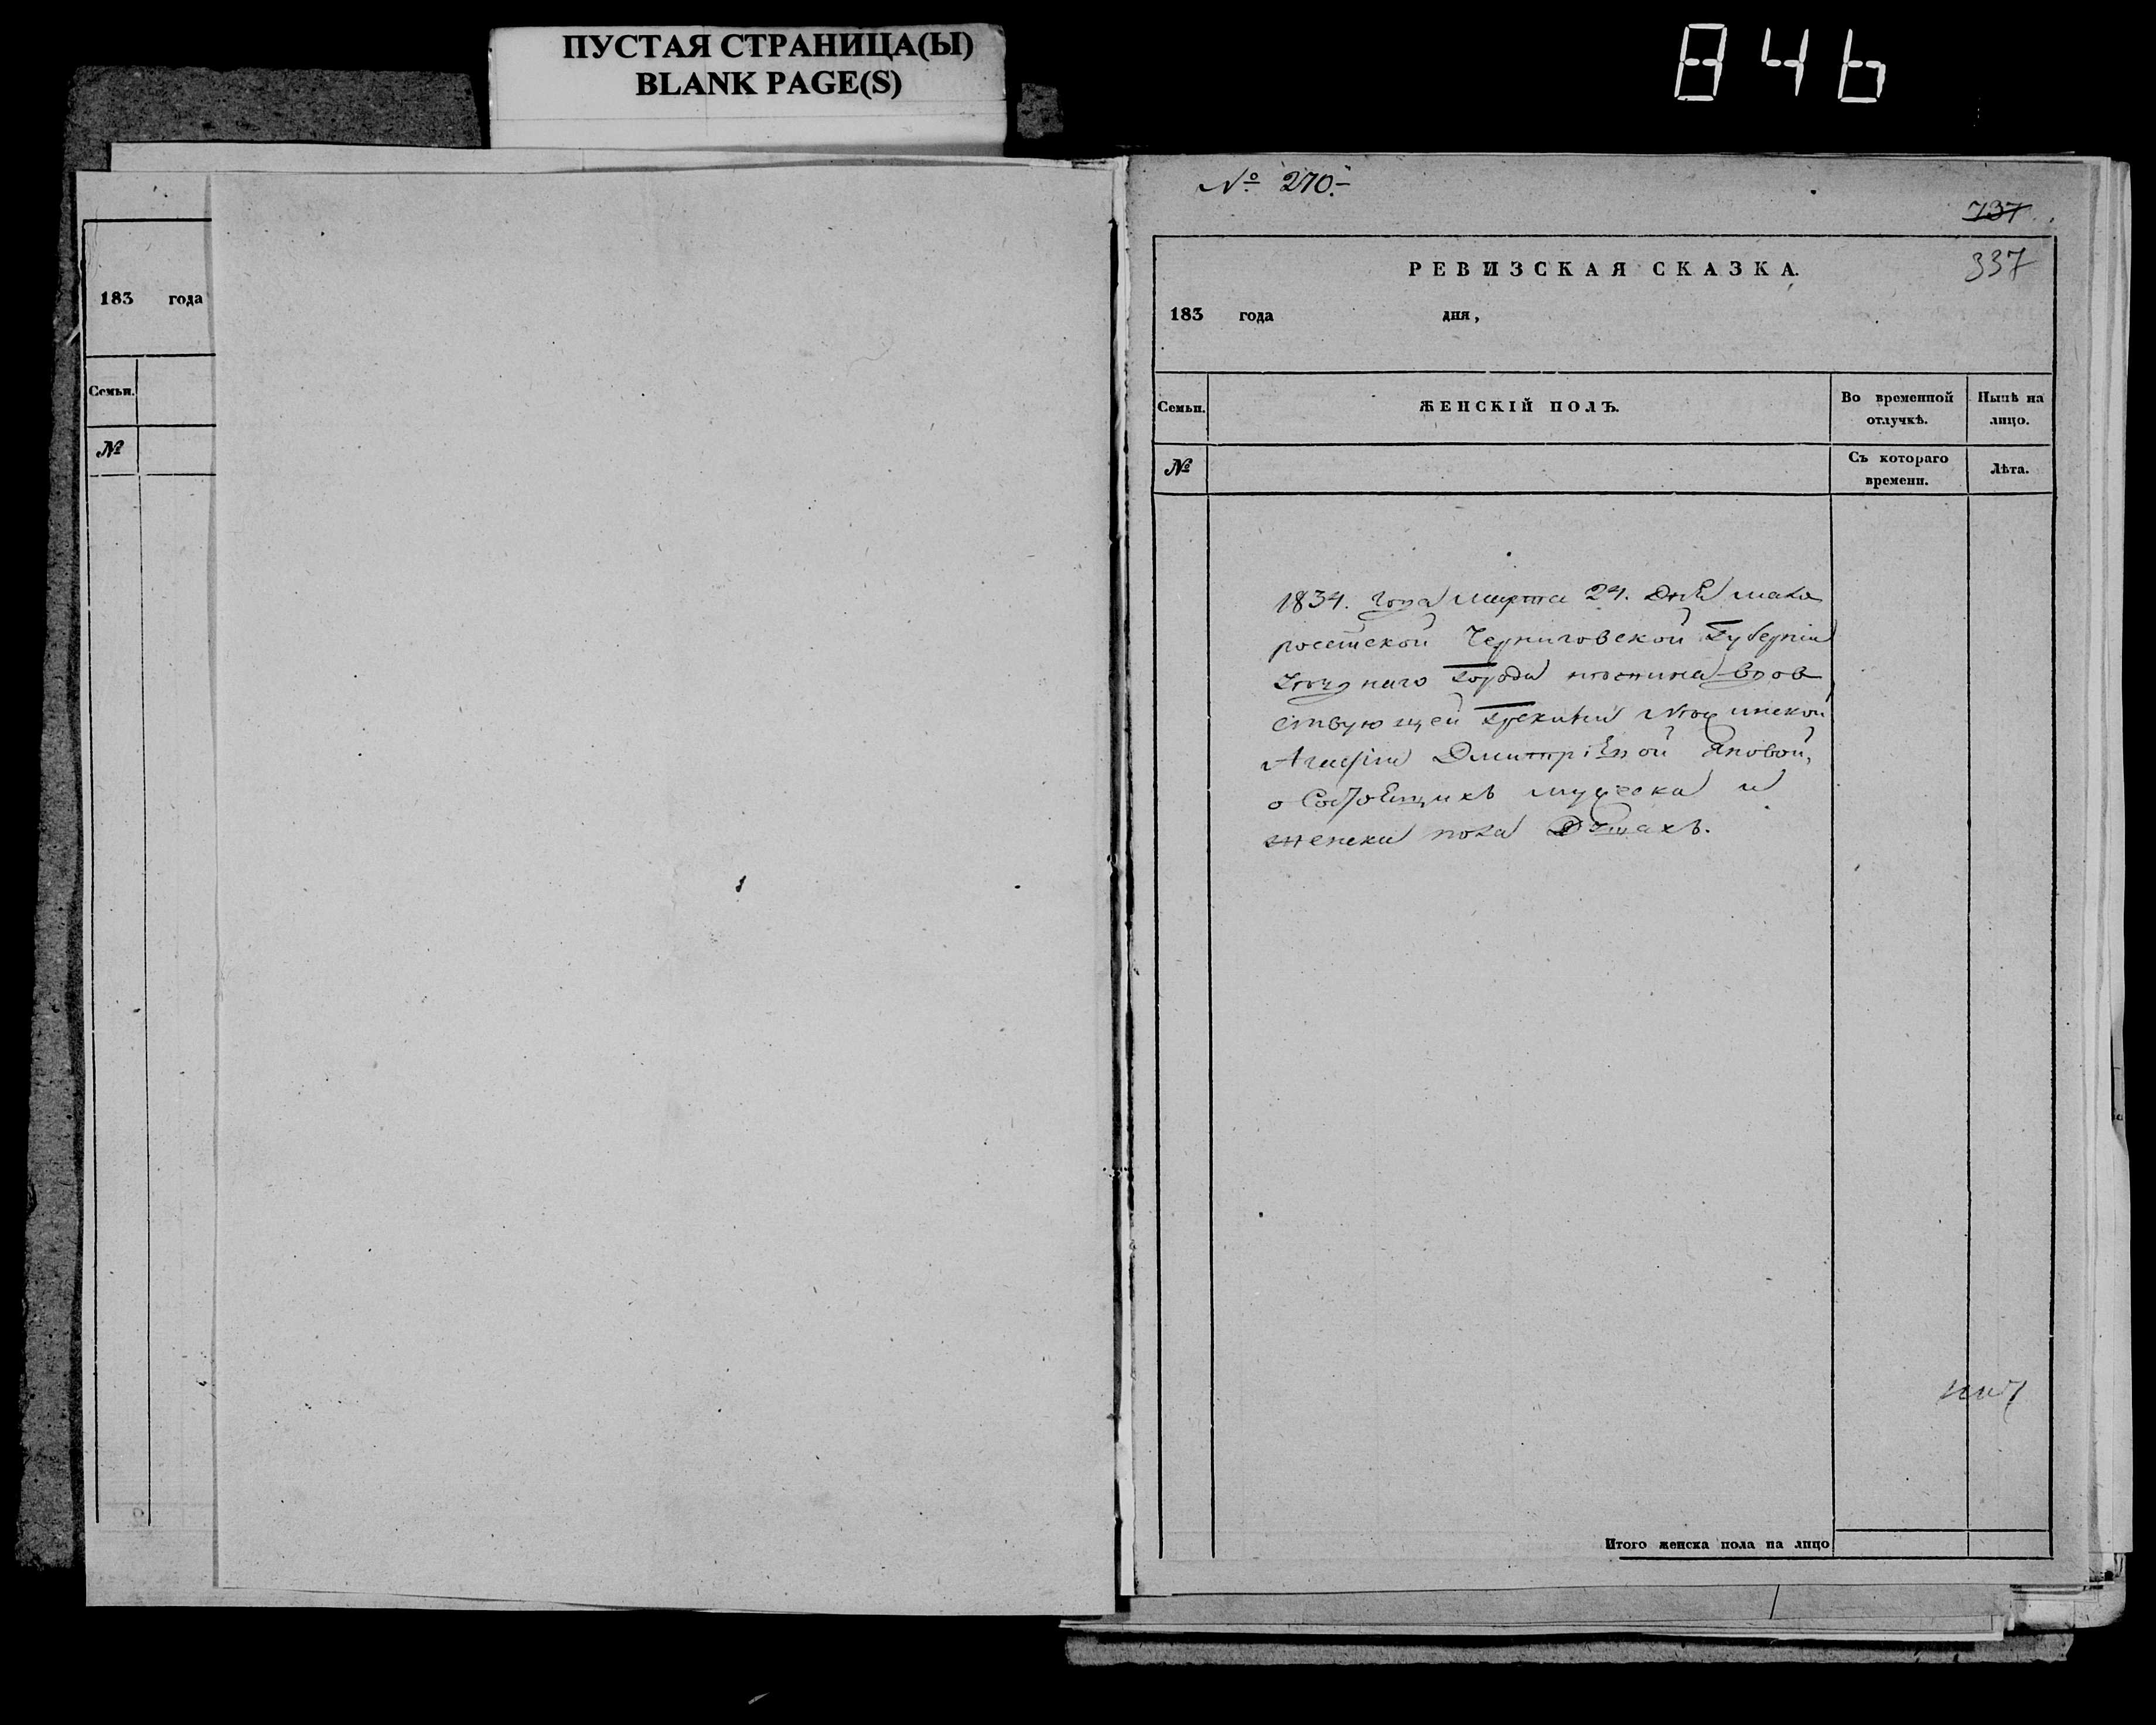 ПУСТАЯ СТРАНИЦА(Ы)
BLANK PAGE(S)
846
183 года
Семьи.
№
№ 270.
737
РЕВИЗСКАЯ СКАЗКА.
337
183 года дня,
Семьи.
ЖЕНСКІЙ ПОЛЪ.
Во временной отлучкѣ.
Нынѣ на лицо.
№
Съ котораго времени.
Лѣта.
1834. года марта 24. дня мало
росейской Черниговской Губерніи
города нѣжина вдов
ствующей Грекини
Дмитріевой
о мужеска и
женска пола Душахъ.
Итого женска пола на лицо